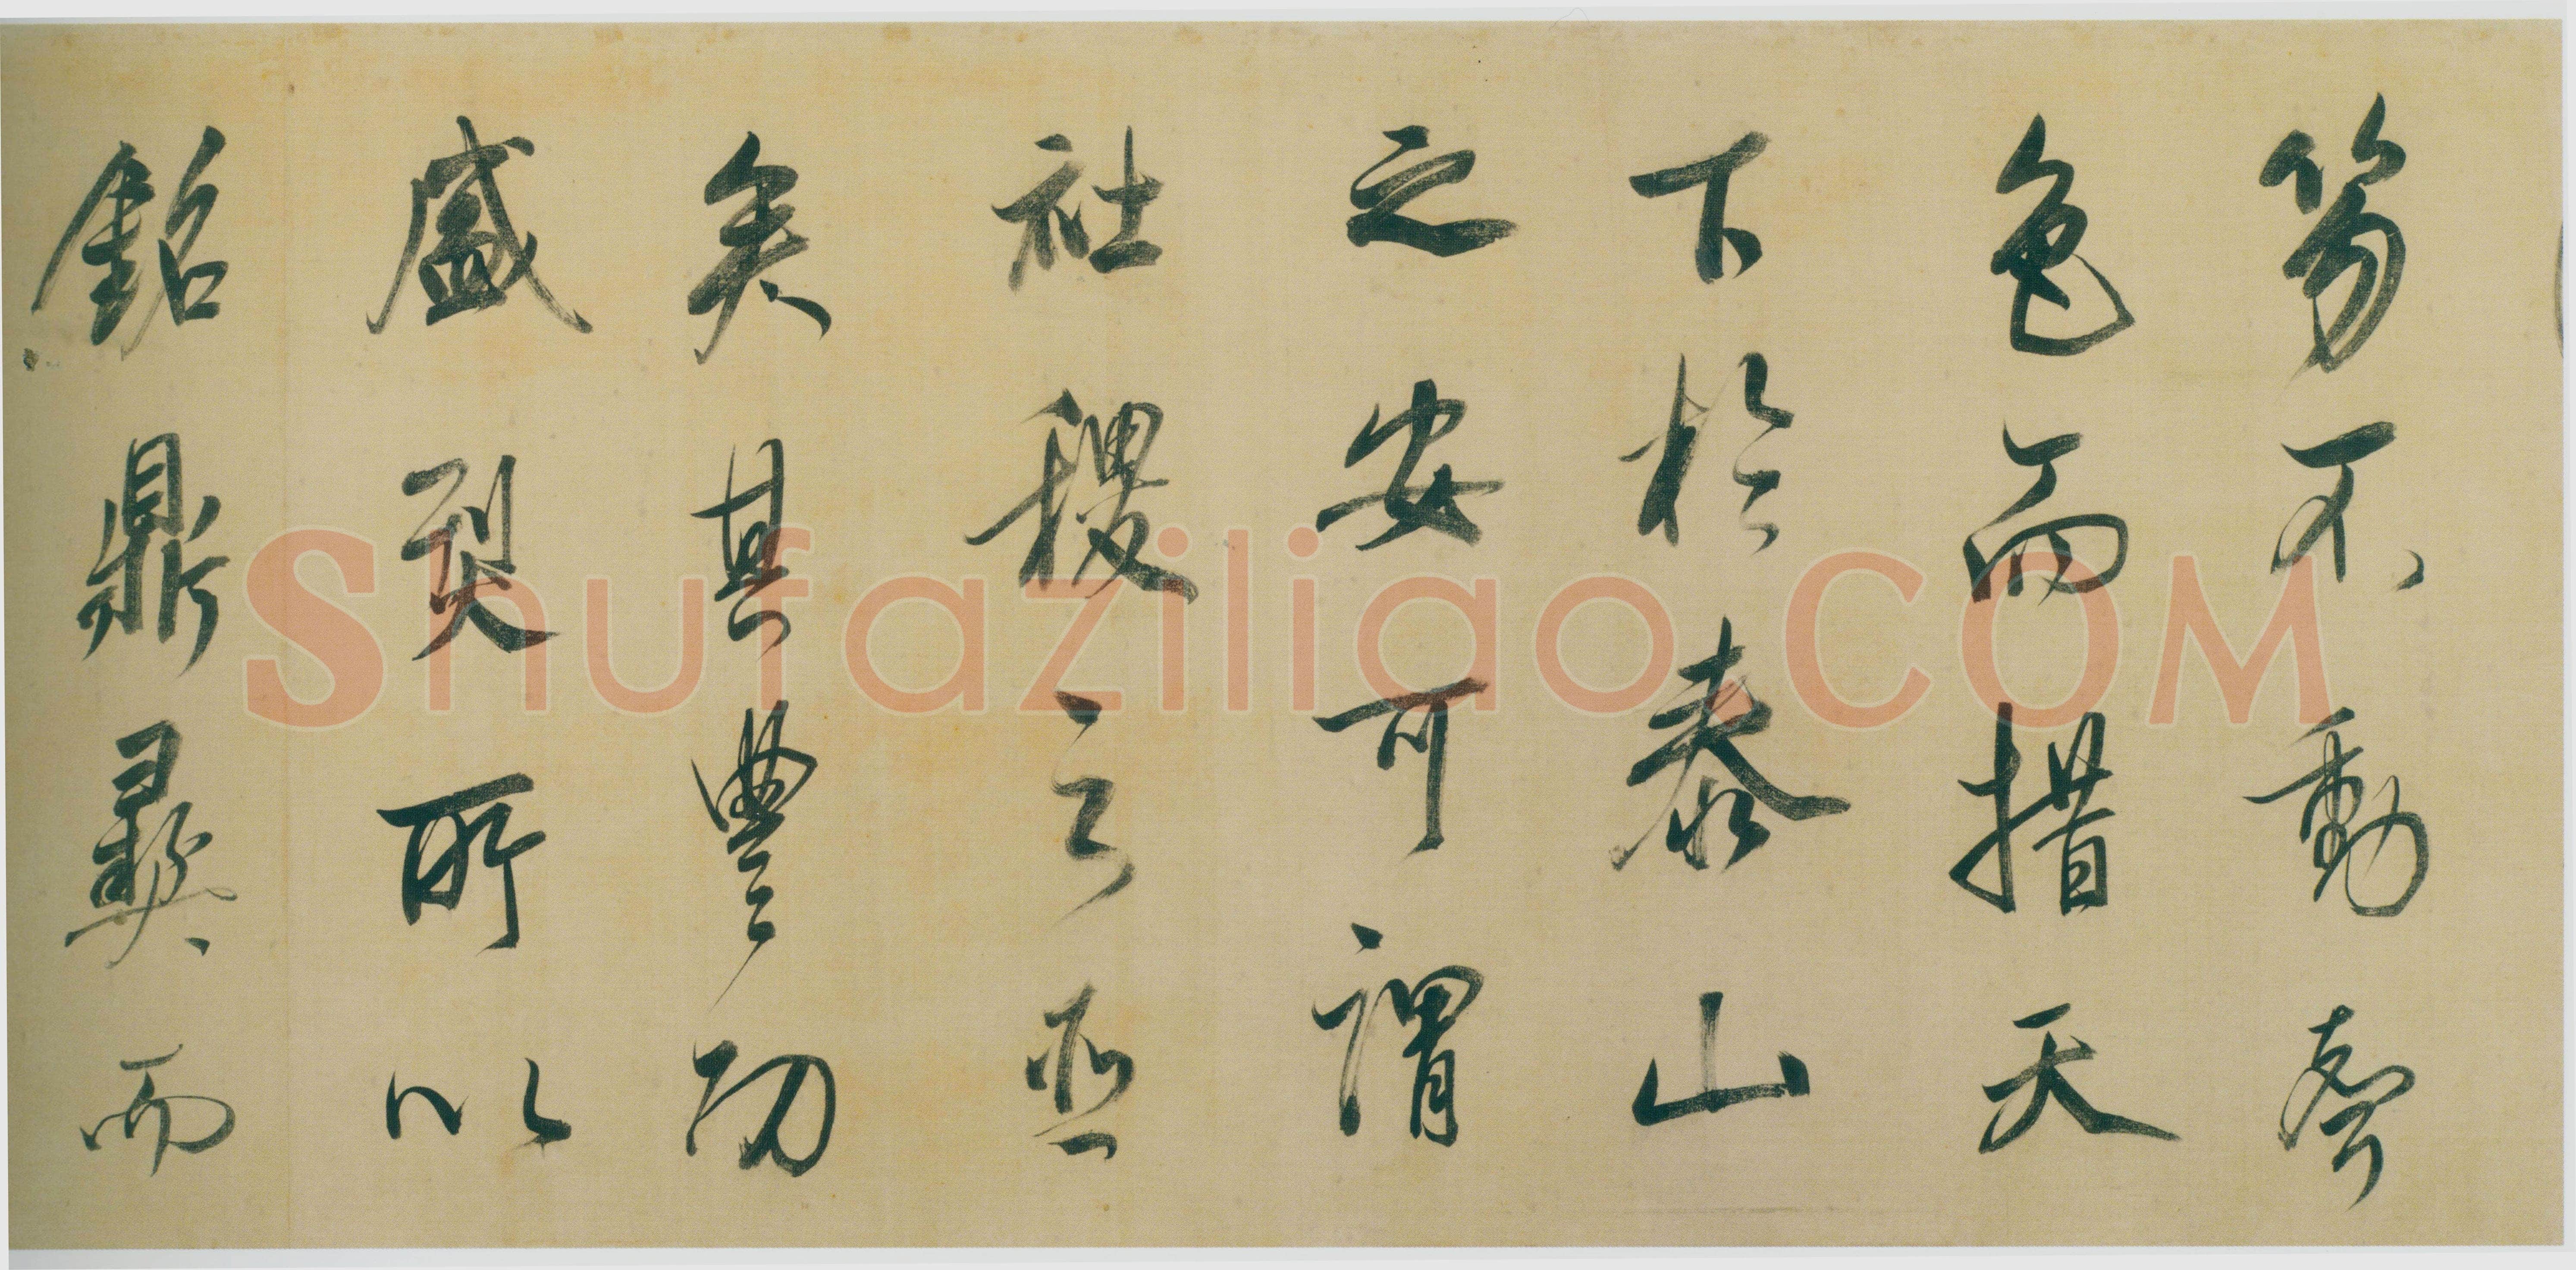 笏不動聲
色而措天
下於泰山
之安可謂
社稷之臣
矣其豐功
盛烈所以
銘鼎彝而
Shufaziliao.COM